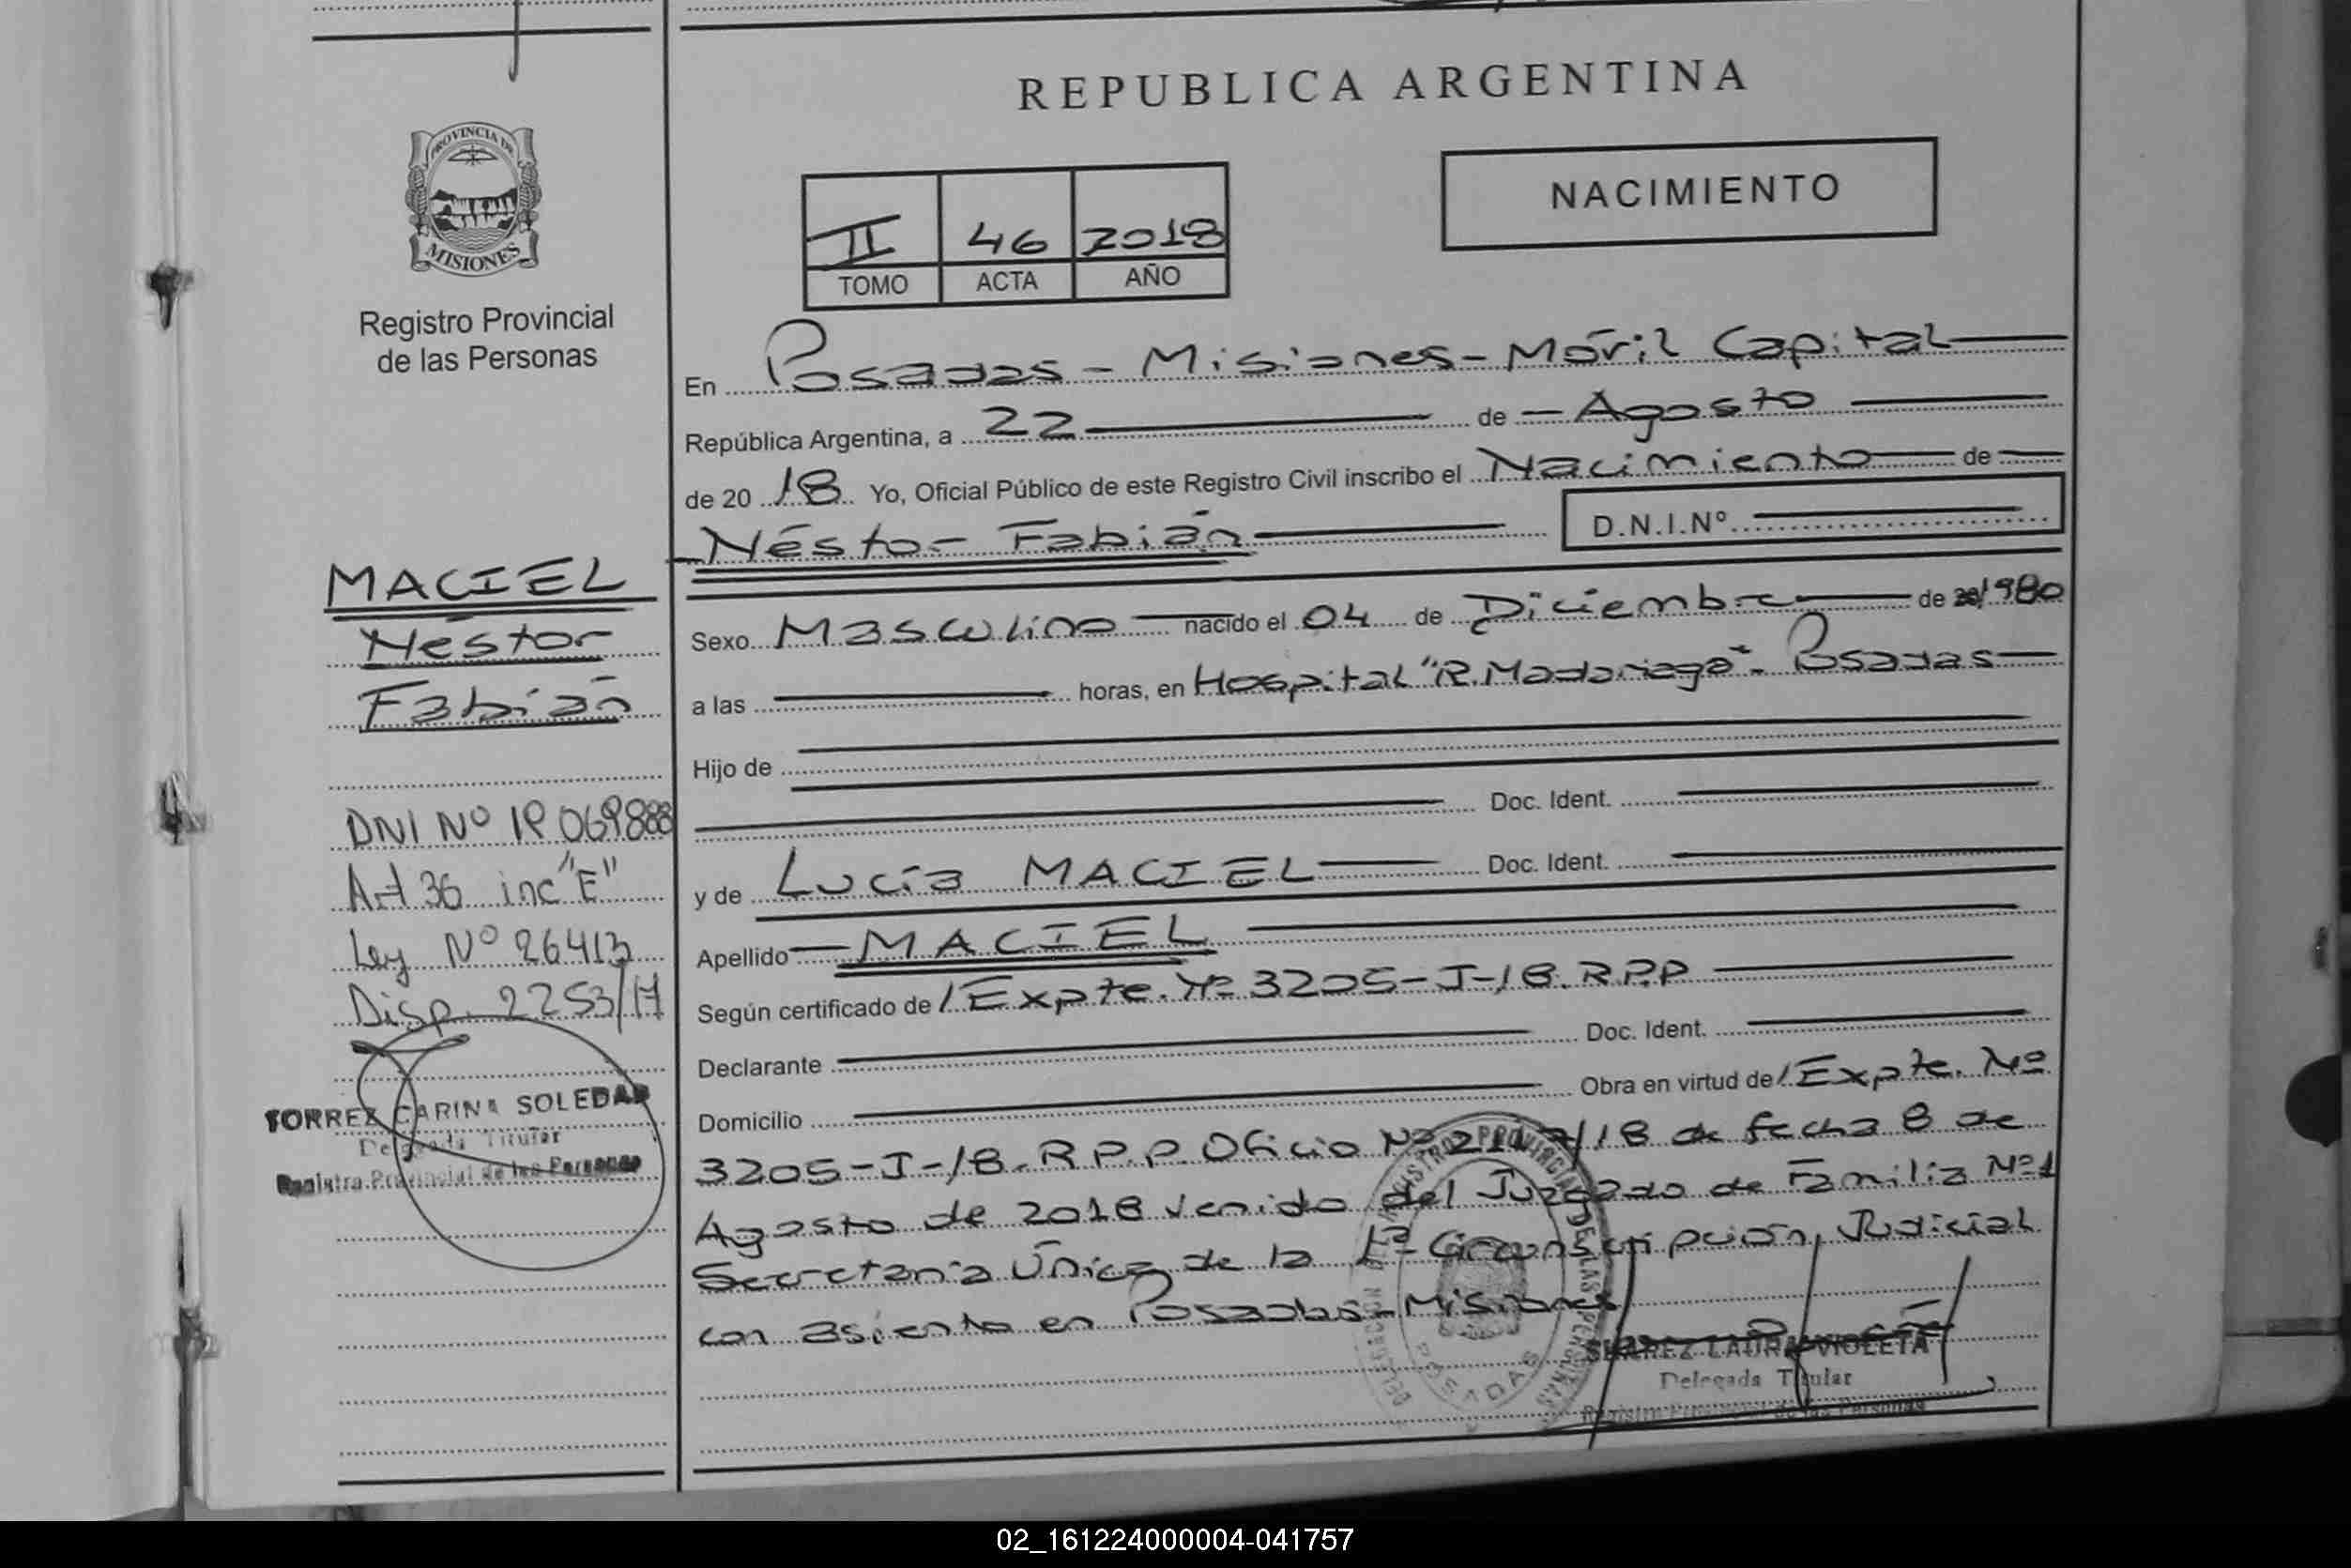 REPUBLICA ARGENTINA
PROVINCIA DE
MISIONES
Registro Provincial
de las Personas
NACIMIENTO
II 46 2018
TOMO ACTA AÑO
En Posadas - Misiones - Móvil Capital
República Argentina, a 22 de Agosto
de 20 18 Yo, Oficial Público de este Registro Civil inscribo el Nacimiento de
Néstor Fabián D.N.I.Nº
MACIEL
Néstor
Fabián
Sexo Masculino nacido el 04 de Diciembre de 1980
a las horas, en Hospital "R. Madariaga". Posadas
Hijo de
Doc. Ident.
y de Lucía MACIEL Doc. Ident.
Apellido MACIEL
Según certificado de / Expte. Nº 3205-J-18. R.P.P
Declarante Doc. Ident.
Domicilio Obra en virtud de / Expte. Nº
3205-J-18. R.P.P. Oficio Nº /18 de fecha 8 de
Agosto de 2018 venido del Juzgado de Familia Nº1
Secretaría Única de la 1ª Circunscripción Judicial
con asiento en Posadas - Misiones
DNI Nº 069888
Art 36 inc "E"
Ley Nº 26413
Disp. 2253/17
TORREZ CARINA SOLEDAD
Delegada Titular
Registro Provincial de las Personas
SUAREZ LAURA VIOLETA
Delegada Titular
Registro Provincial de las Personas
POSADAS
02_161224000004-041757